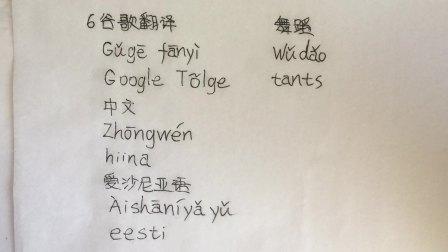 6谷歌翻译
Gǔgē fānyì
Google Tõlge
中文
Zhōngwén
hiina
爱沙尼亚语
Àishāníyǎ yǔ
eesti
舞蹈
Wǔdǎo
tants